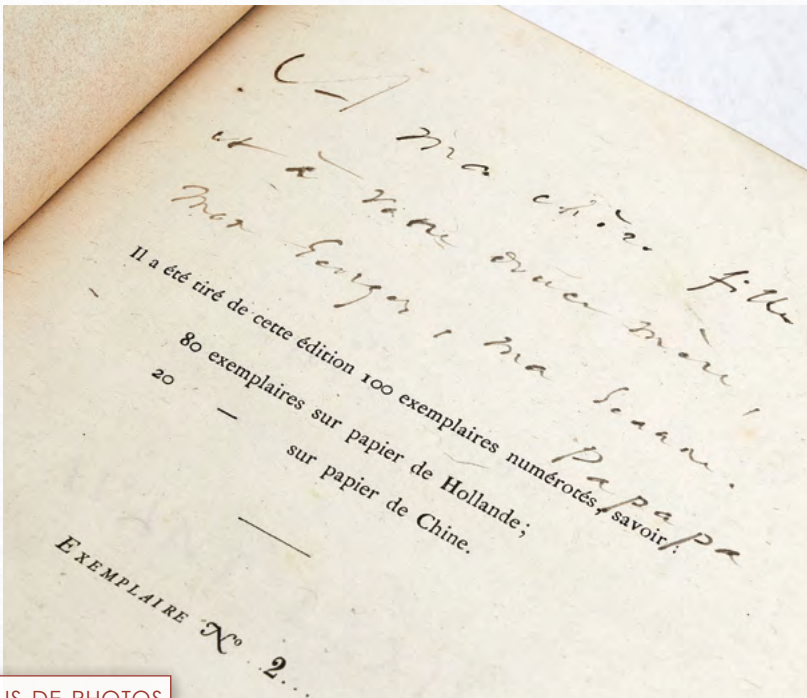 A ma chère fille
et à votre douce mère,
mon Georges, ma Jeanne.
Papapa
Il a été tiré de cette édition 100 exemplaires numérotés, savoir :
80 exemplaires sur papier de Hollande ;
20 — sur papier de Chine.
EXEMPLAIRE Nº 2...
US DE PHOTOS